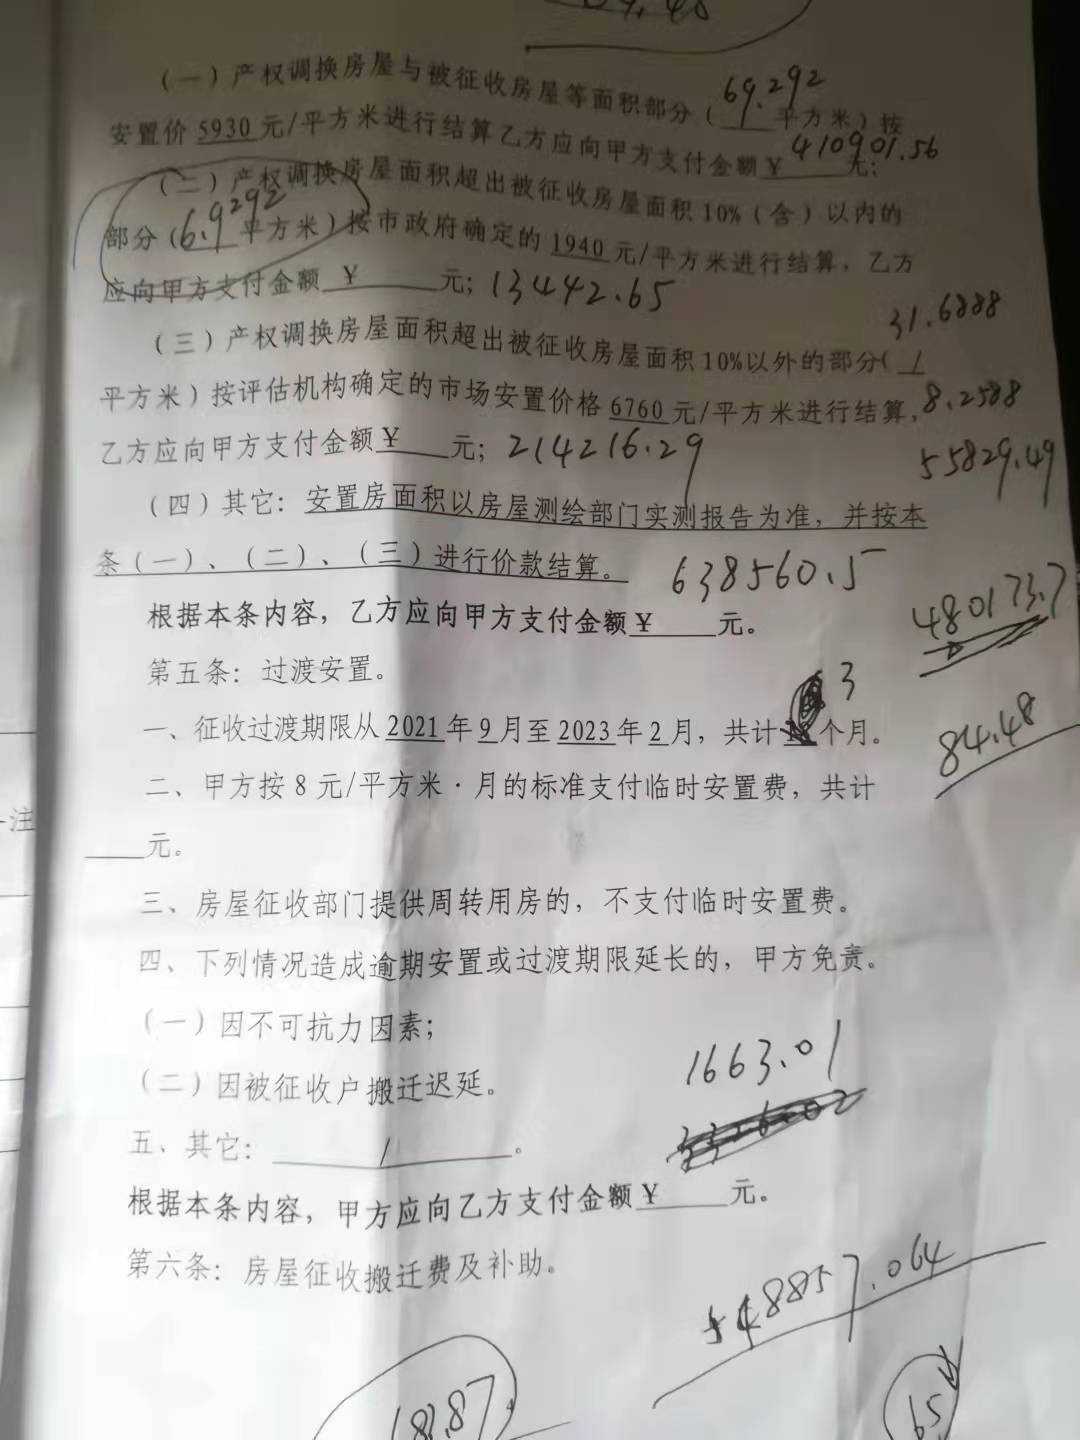 （一）产权调换房屋与被征收房屋等面积部分（69.292平方米）按
安置价 5930 元/平方米进行结算乙方应向甲方支付金额¥410901.56元；
（二）产权调换房屋面积超出被征收房屋面积10%（含）以内的
部分（6.9292平方米）按市政府确定的 1940 元/平方米进行结算，乙方
应向甲方支付金额 ¥ 元；13442.65
31.6888
（三）产权调换房屋面积超出被征收房屋面积10%以外的部分（/
平方米）按评估机构确定的市场安置价格 6760 元/平方米进行结算，8.2588
乙方应向甲方支付金额¥ 元；214216.29
55829.49
（四）其它：安置房面积以房屋测绘部门实测报告为准，并按本
条（一）、（二）、（三）进行价款结算。
638560.5
480173.7
根据本条内容，乙方应向甲方支付金额¥ 元。
第五条：过渡安置。
3
一、征收过渡期限从 2021 年 9 月至 2023 年 2 月，共计 个月。
84.48
二、甲方按 8 元/平方米·月的标准支付临时安置费，共计
注
元。
三、房屋征收部门提供周转用房的，不支付临时安置费。
四、下列情况造成逾期安置或过渡期限延长的，甲方免责。
（一）因不可抗力因素；
1663.01
（二）因被征收户搬迁迟延。
3326.02
五、其它： / 。
根据本条内容，甲方应向乙方支付金额¥ 元。
第六条：房屋征收搬迁费及补助。
48857.064
65